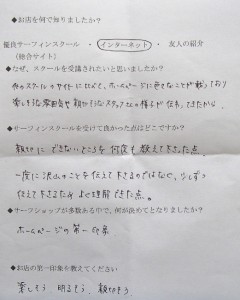 ◆お店を何で知りましたか？
優良サーフィンスクール ・ インターネット ・ 友人の紹介
（総合サイト）
◆なぜ、スクールを受講されたいと思いましたか？
他のスクールのサイトに比べて、ホームページに色々なことが載っており
楽しそうな雰囲気や親切そうなスタッフさんの様子が伝わってきたから。
◆サーフィンスクールを受けて良かった点はどこですか？
親切に できないところを 何度も教えて下さった点。
一度に沢山のことを伝えて下さるのではなく、少しずつ
伝えて下さるためよく理解できた点。
◆サーフショップが多数ある中で、何が決めてとなりましたか？
ホームページの第一印象
◆お店の第一印象を教えてください
楽しそう 明るそう 親切そう